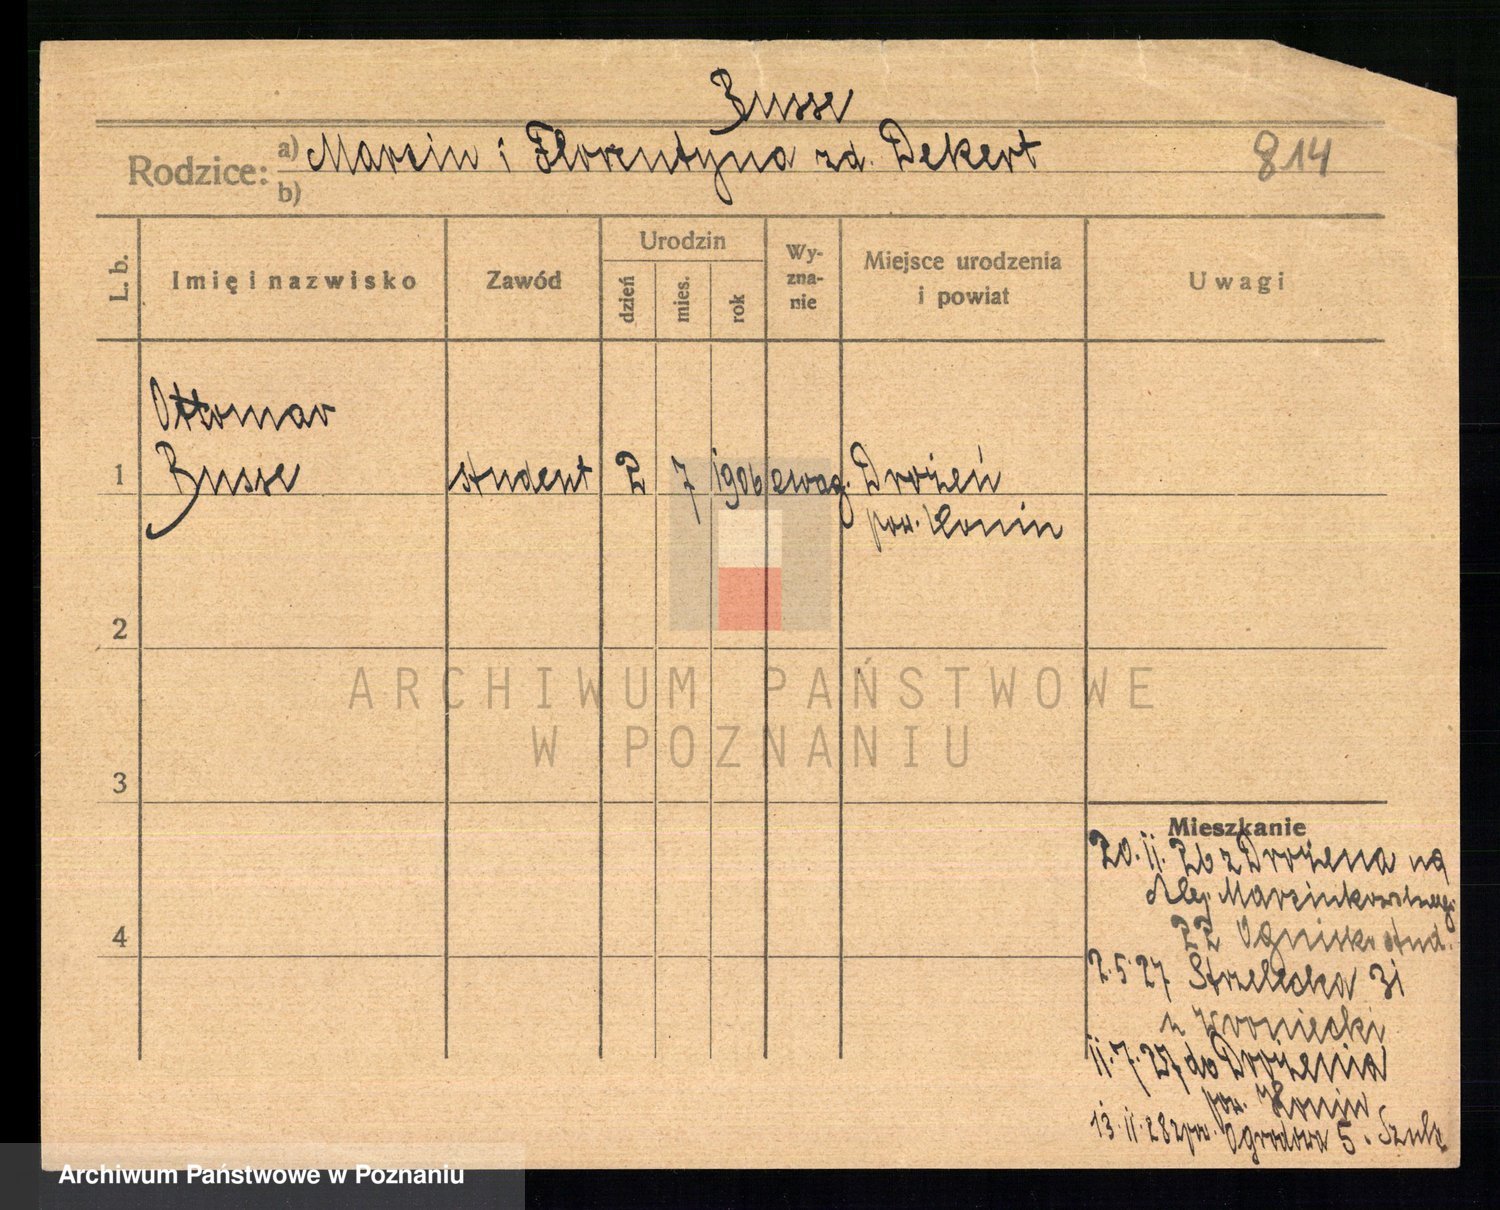 Busse
Rodzice: a) Marcin i Florentyna zd. Dekert 814
b)
L. b. Imię i nazwisko Zawód Urodzin dzień mies. rok Wyzna-nie Miejsce urodzenia i powiat Uwagi
Ottomar
1 Busse student 2 7 1906 ewag. Drożeń
pow. Konin
2
3
4
Mieszkanie
20.II.26 z Drożena na
Alej Marcinkowskiego
22 Ognisko stud.
2.5.27 Strzelecka 31
u Kroniecki
11.7.27 do Drożenia
pow. Konin
13.11.28 zpw. Ogrodowa 5. Szulc
ARCHIWUM PAŃSTWOWE
W POZNANIU
Archiwum Państwowe w Poznaniu